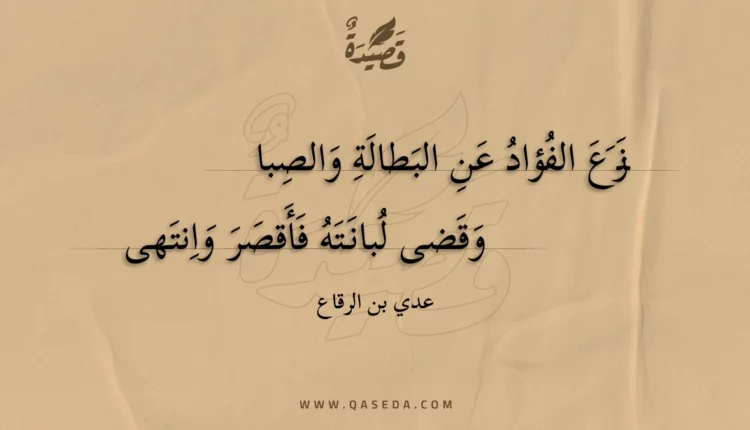 قَصِيْدَةٌ
نَزَعَ الفُؤادُ عَنِ البَطالَةِ وَالصِبا
وَقَضى لُبانَتَهُ فَأَقصَرَ وَاِنتَهى
عدي بن الرقاع
WWW.QASEDA.COM